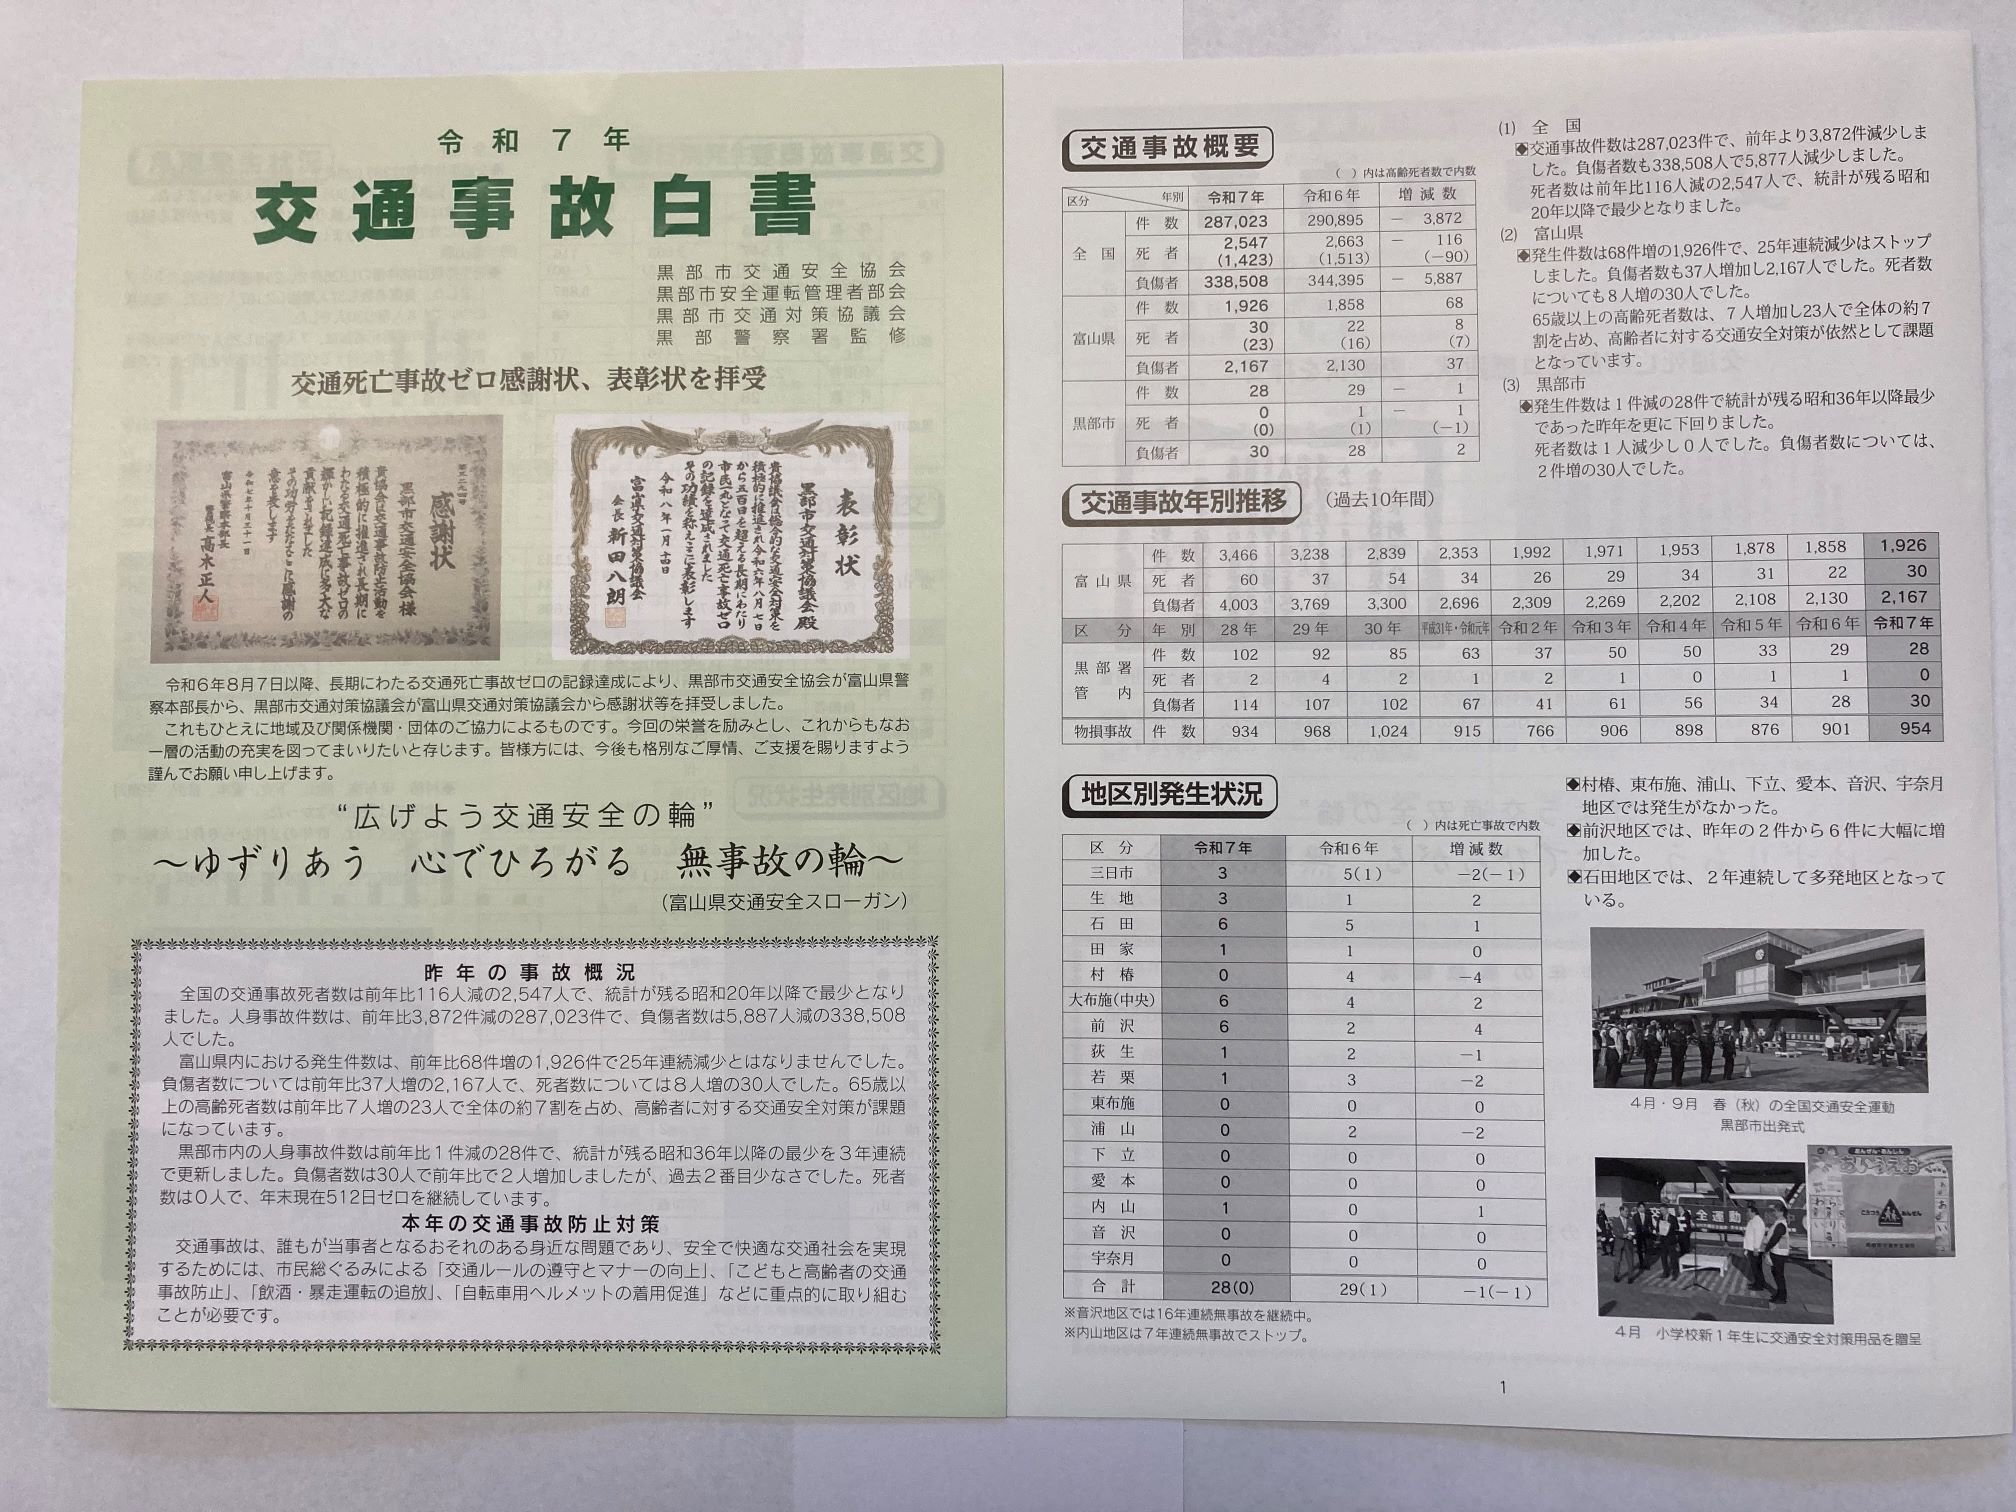 令和7年
交通事故白書
黒部市交通安全協会
黒部市安全運転管理者部会
黒部市交通対策協議会
黒部警察署監修
交通死亡事故ゼロ感謝状、表彰状を拝受
感謝状
黒部市交通安全協会様
貴協会は交通事故防止活動を
積極的に推進され長期に
わたる交通死亡事故ゼロの
輝かしい記録達成に多大な
貢献をされました
その功労をたたえここに感謝の
意を表します
令和七年十月三十一日
富山県警察本部長
警視長 高木正人
表彰状
黒部市交通対策協議会殿
貴協議会は総合的な交通安全対策を
積極的に推進され令和六年八月七日
から五百日を超える長期にわたり
市民一丸となって交通死亡事故ゼロ
の記録を達成されました
その功績を称えここに表彰します
令和八年一月十四日
富山県交通対策協議会
会長 新田八朗
令和6年8月7日以降、長期にわたる交通死亡事故ゼロの記録達成により、黒部市交通安全協会が富山県警
察本部長から、黒部市交通対策協議会が富山県交通対策協議会から感謝状等を拝受しました。
これもひとえに地域及び関係機関・団体のご協力によるものです。今回の栄誉を励みとし、これからもなお
一層の活動の充実を図ってまいりたいと存じます。皆様方には、今後も格別なご厚情、ご支援を賜りますよう
謹んでお願い申し上げます。
“広げよう交通安全の輪”
～ゆずりあう 心でひろがる 無事故の輪～
（富山県交通安全スローガン）
昨年の事故概況
全国の交通事故死者数は前年比116人減の2,547人で、統計が残る昭和20年以降で最少となり
ました。人身事故件数は、前年比3,872件減の287,023件で、負傷者数は5,887人減の338,508
人でした。
富山県内における発生件数は、前年比68件増の1,926件で25年連続減少とはなりませんでした。
負傷者数については前年比37人増の2,167人で、死者数については８人増の30人でした。65歳以
上の高齢死者数は前年比７人増の23人で全体の約７割を占め、高齢者に対する交通安全対策が課題
になっています。
黒部市内の人身事故件数は前年比１件減の28件で、統計が残る昭和36年以降の最少を３年連続
で更新しました。負傷者数は30人で前年比で２人増加しましたが、過去２番目少なさでした。死者
数は０人で、年末現在512日ゼロを継続しています。
本年の交通事故防止対策
交通事故は、誰もが当事者となるおそれのある身近な問題であり、安全で快適な交通社会を実現
するためには、市民総ぐるみによる「交通ルールの遵守とマナーの向上」、「こどもと高齢者の交通
事故防止」、「飲酒・暴走運転の追放」、「自転車用ヘルメットの着用促進」などに重点的に取り組む
ことが必要です。
交通事故概要
（ ）内は高齢死者数で内数
区分 年別 令和７年 令和６年 増減数
全国 件数 287,023 290,895 － 3,872
死者 2,547 2,663 － 116
(1,423) (1,513) (－90)
負傷者 338,508 344,395 － 5,887
富山県 件数 1,926 1,858 68
死者 30 22 8
(23) (16) (7)
負傷者 2,167 2,130 37
黒部市 件数 28 29 － 1
死者 0 1 － 1
(0) (1) (－1)
負傷者 30 28 2
⑴ 全国
◆交通事故件数は287,023件で、前年より3,872件減少しま
した。負傷者数も338,508人で5,877人減少しました。
死者数は前年比116人減の2,547人で、統計が残る昭和
20年以降で最少となりました。
⑵ 富山県
◆発生件数は68件増の1,926件で、25年連続減少はストップ
しました。負傷者数も37人増加し2,167人でした。死者数
についても８人増の30人でした。
65歳以上の高齢死者数は、７人増加し23人で全体の約７
割を占め、高齢者に対する交通安全対策が依然として課題
となっています。
⑶ 黒部市
◆発生件数は１件減の28件で統計が残る昭和36年以降最少
であった昨年を更に下回りました。
死者数は１人減少し０人でした。負傷者数については、
２件増の30人でした。
交通事故年別推移 （過去10年間）
富山県 件数 3,466 3,238 2,839 2,353 1,992 1,971 1,953 1,878 1,858 1,926
死者 60 37 54 34 26 29 34 31 22 30
負傷者 4,003 3,769 3,300 2,696 2,309 2,269 2,202 2,108 2,130 2,167
区分 年別 28年 29年 30年 平成31年・令和元年 令和２年 令和３年 令和４年 令和５年 令和６年 令和７年
黒部署管内 件数 102 92 85 63 37 50 50 33 29 28
死者 2 4 2 1 2 1 0 1 1 0
負傷者 114 107 102 67 41 61 56 34 28 30
物損事故 件数 934 968 1,024 915 766 906 898 876 901 954
地区別発生状況
（ ）内は死亡事故で内数
区分 令和７年 令和６年 増減数
三日市 3 5(1) －2(－1)
生地 3 1 2
石田 6 5 1
田家 1 1 0
村椿 0 4 －4
大布施(中央) 6 4 2
前沢 6 2 4
荻生 1 2 －1
若栗 1 3 －2
東布施 0 0 0
浦山 0 2 －2
下立 0 0 0
愛本 0 0 0
内山 1 0 1
音沢 0 0 0
宇奈月 0 0 0
合計 28(0) 29(1) －1(－1)
※音沢地区では16年連続無事故を継続中。
※内山地区は７年連続無事故でストップ。
◆村椿、東布施、浦山、下立、愛本、音沢、宇奈月
地区では発生がなかった。
◆前沢地区では、昨年の２件から６件に大幅に増
加した。
◆石田地区では、２年連続して多発地区となって
いる。
４月・９月 春（秋）の全国交通安全運動
黒部市出発式
あんぜん・あんしん
あいうえお
こうつう あんぜん
４月 小学校新１年生に交通安全対策用品を贈呈
1